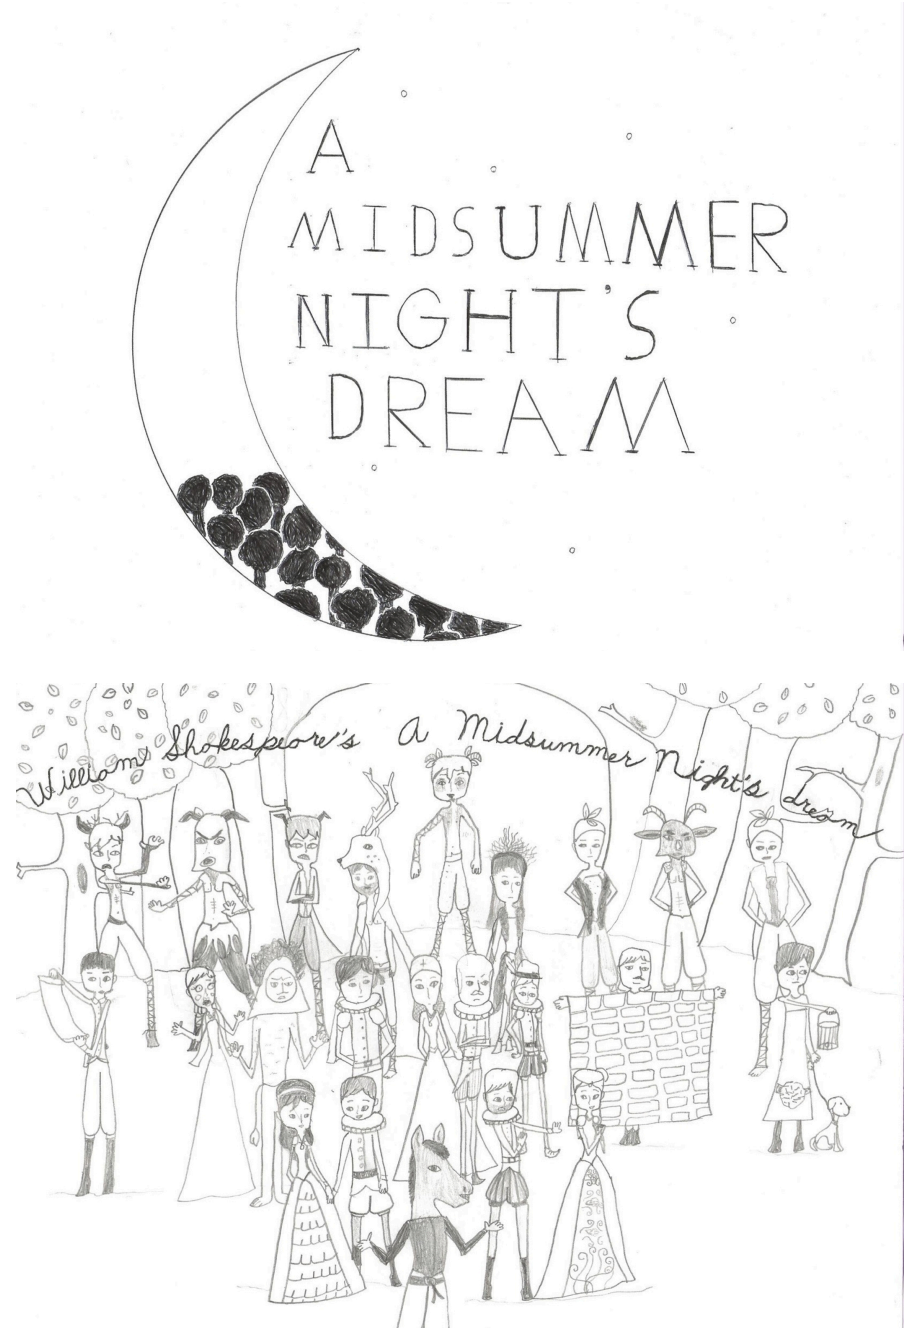 A
MIDSUMMER
NIGHT'S
DREAM
William Shakespeare's A Midsummer Night's dream